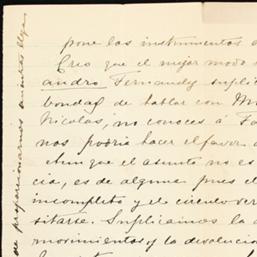 pone los instrumentos
Creo que el mejor modo
andro Fernandez supli
bondad de hablar con
Nicolas, no conoces á
nos podria hacer el favor
Aunque el asunto no es
cia, es de alguna pues el
incompleto y el circulo ver
sitarte. Suplicamos la
movimientos y la devolucion
de proporcionarnos